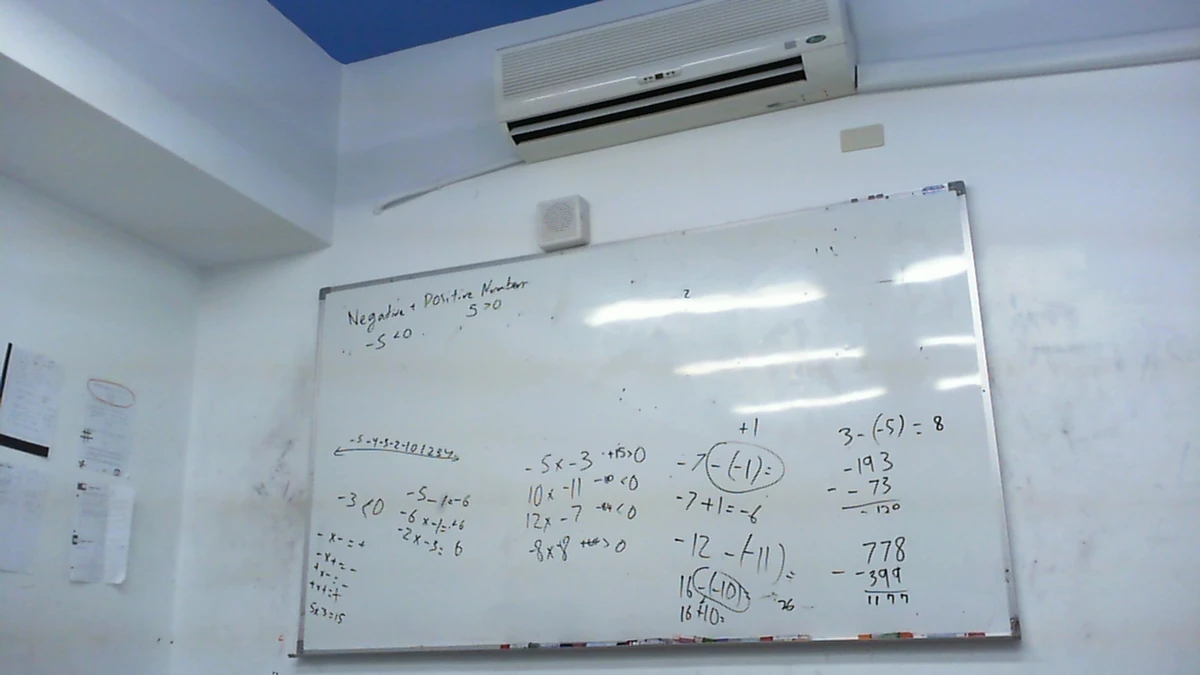 Negative + Positive Numbers
-5 <0
5 >0
-5-4-3-2-1 0 1 2 3 4
-3 <0
-5 - 1 = -6
-6 x -1 = +6
-2 x -3 = 6
- x - = +
- x + = -
+ x - = -
+ x + = +
5x3=15
-5 x -3 +15 >0
10 x -11 <0
12 x -7 -84 <0
-8 x -8 >0
+1
-7 -(-1) =
-7 +1 = -6
-12 -(-11) =
16 -(-10) =
26
16 +10 =
3 - (-5) = 8
-193
- -73
-120
778
- -399
1177
2